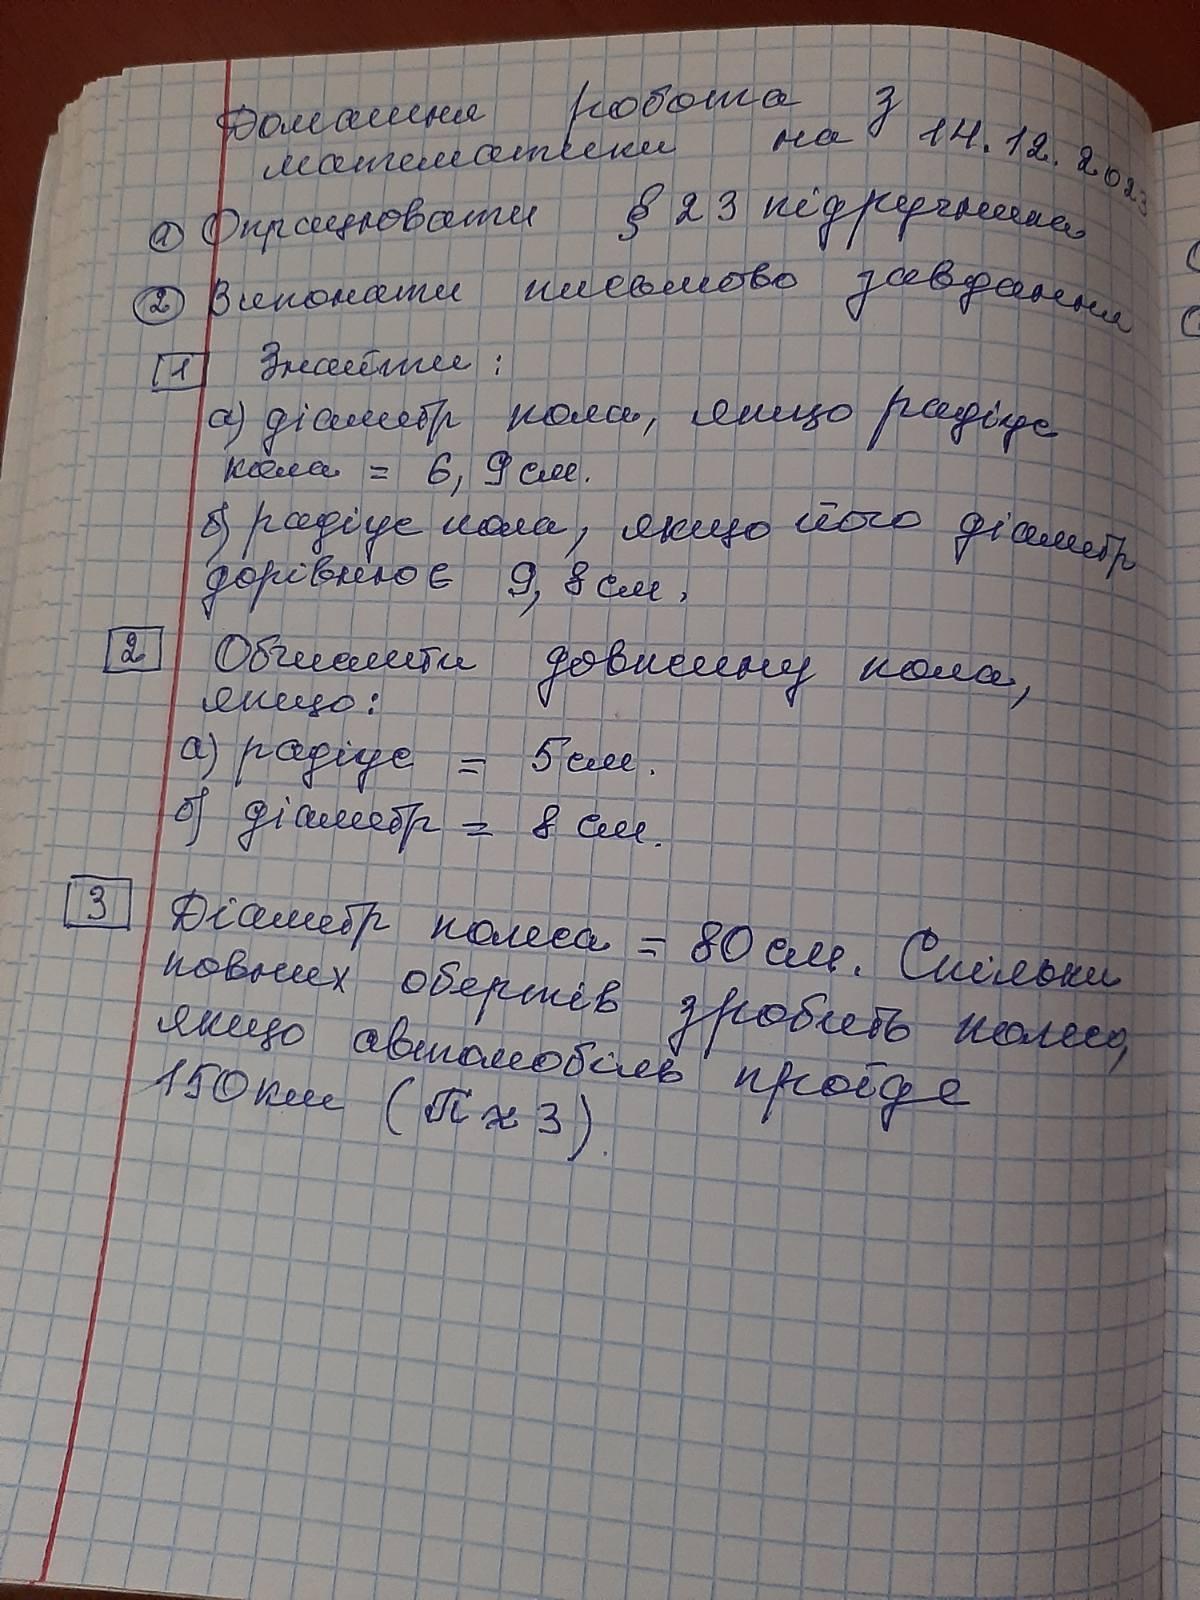 Домашня робота з
математики на 14.12.2023
① Опрацювати § 23 підручника
② Виконати письмово завдання
1 Знайти:
а) діаметр кола, якщо радіус
кола = 6,9 см.
б) радіус кола, якщо його діаметр
дорівнює 9,8 см.
2 Обчислити довжину кола,
якщо:
а) радіус = 5 см.
б) діаметр = 8 см.
3 Діаметр колеса = 80 см. Скільки
повних обертів зробить колесо,
якщо автомобіль проїде
150 км (π ≈ 3).